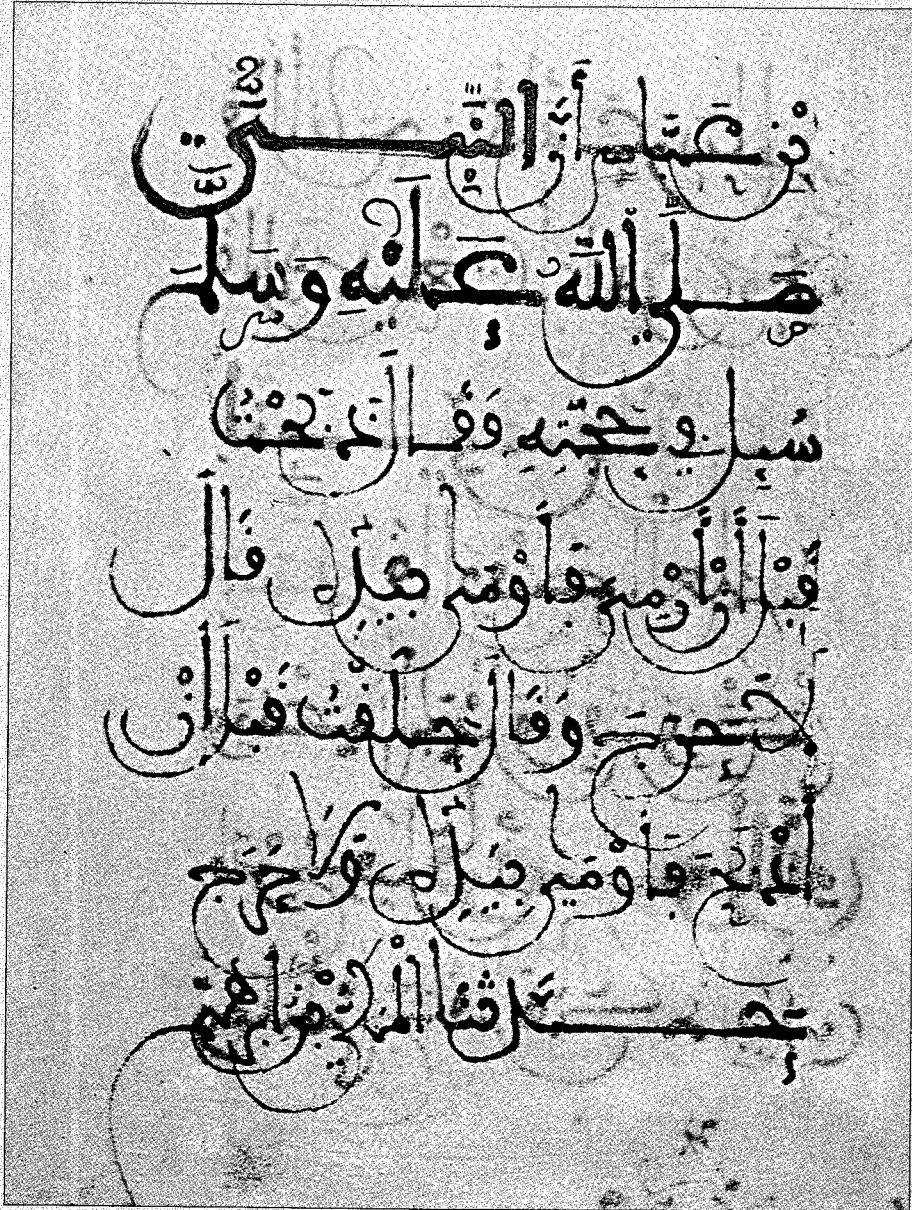 بن عَبَّاسٍ أَنَّ النَّبِيَّ
صَلَّى اللَّهُ عَلَيْهِ وَسَلَّمَ
سُئِلَ فِي حَجَّتِهِ وَقَالَ ذَبَحْتُ
قَبْلَ أَنْ أَرْمِيَ فَأَوْمَى بِيَدِهِ قَالَ
لَا حَرَجَ وَقَالَ حَلَقْتُ قَبْلَ أَنْ
أَذْبَحَ فَأَوْمَى بِيَدِهِ وَلَا حَرَجَ
حَدَّثَنَا الْمَكِّيُّ بْنُ إِبْرَاهِيمَ